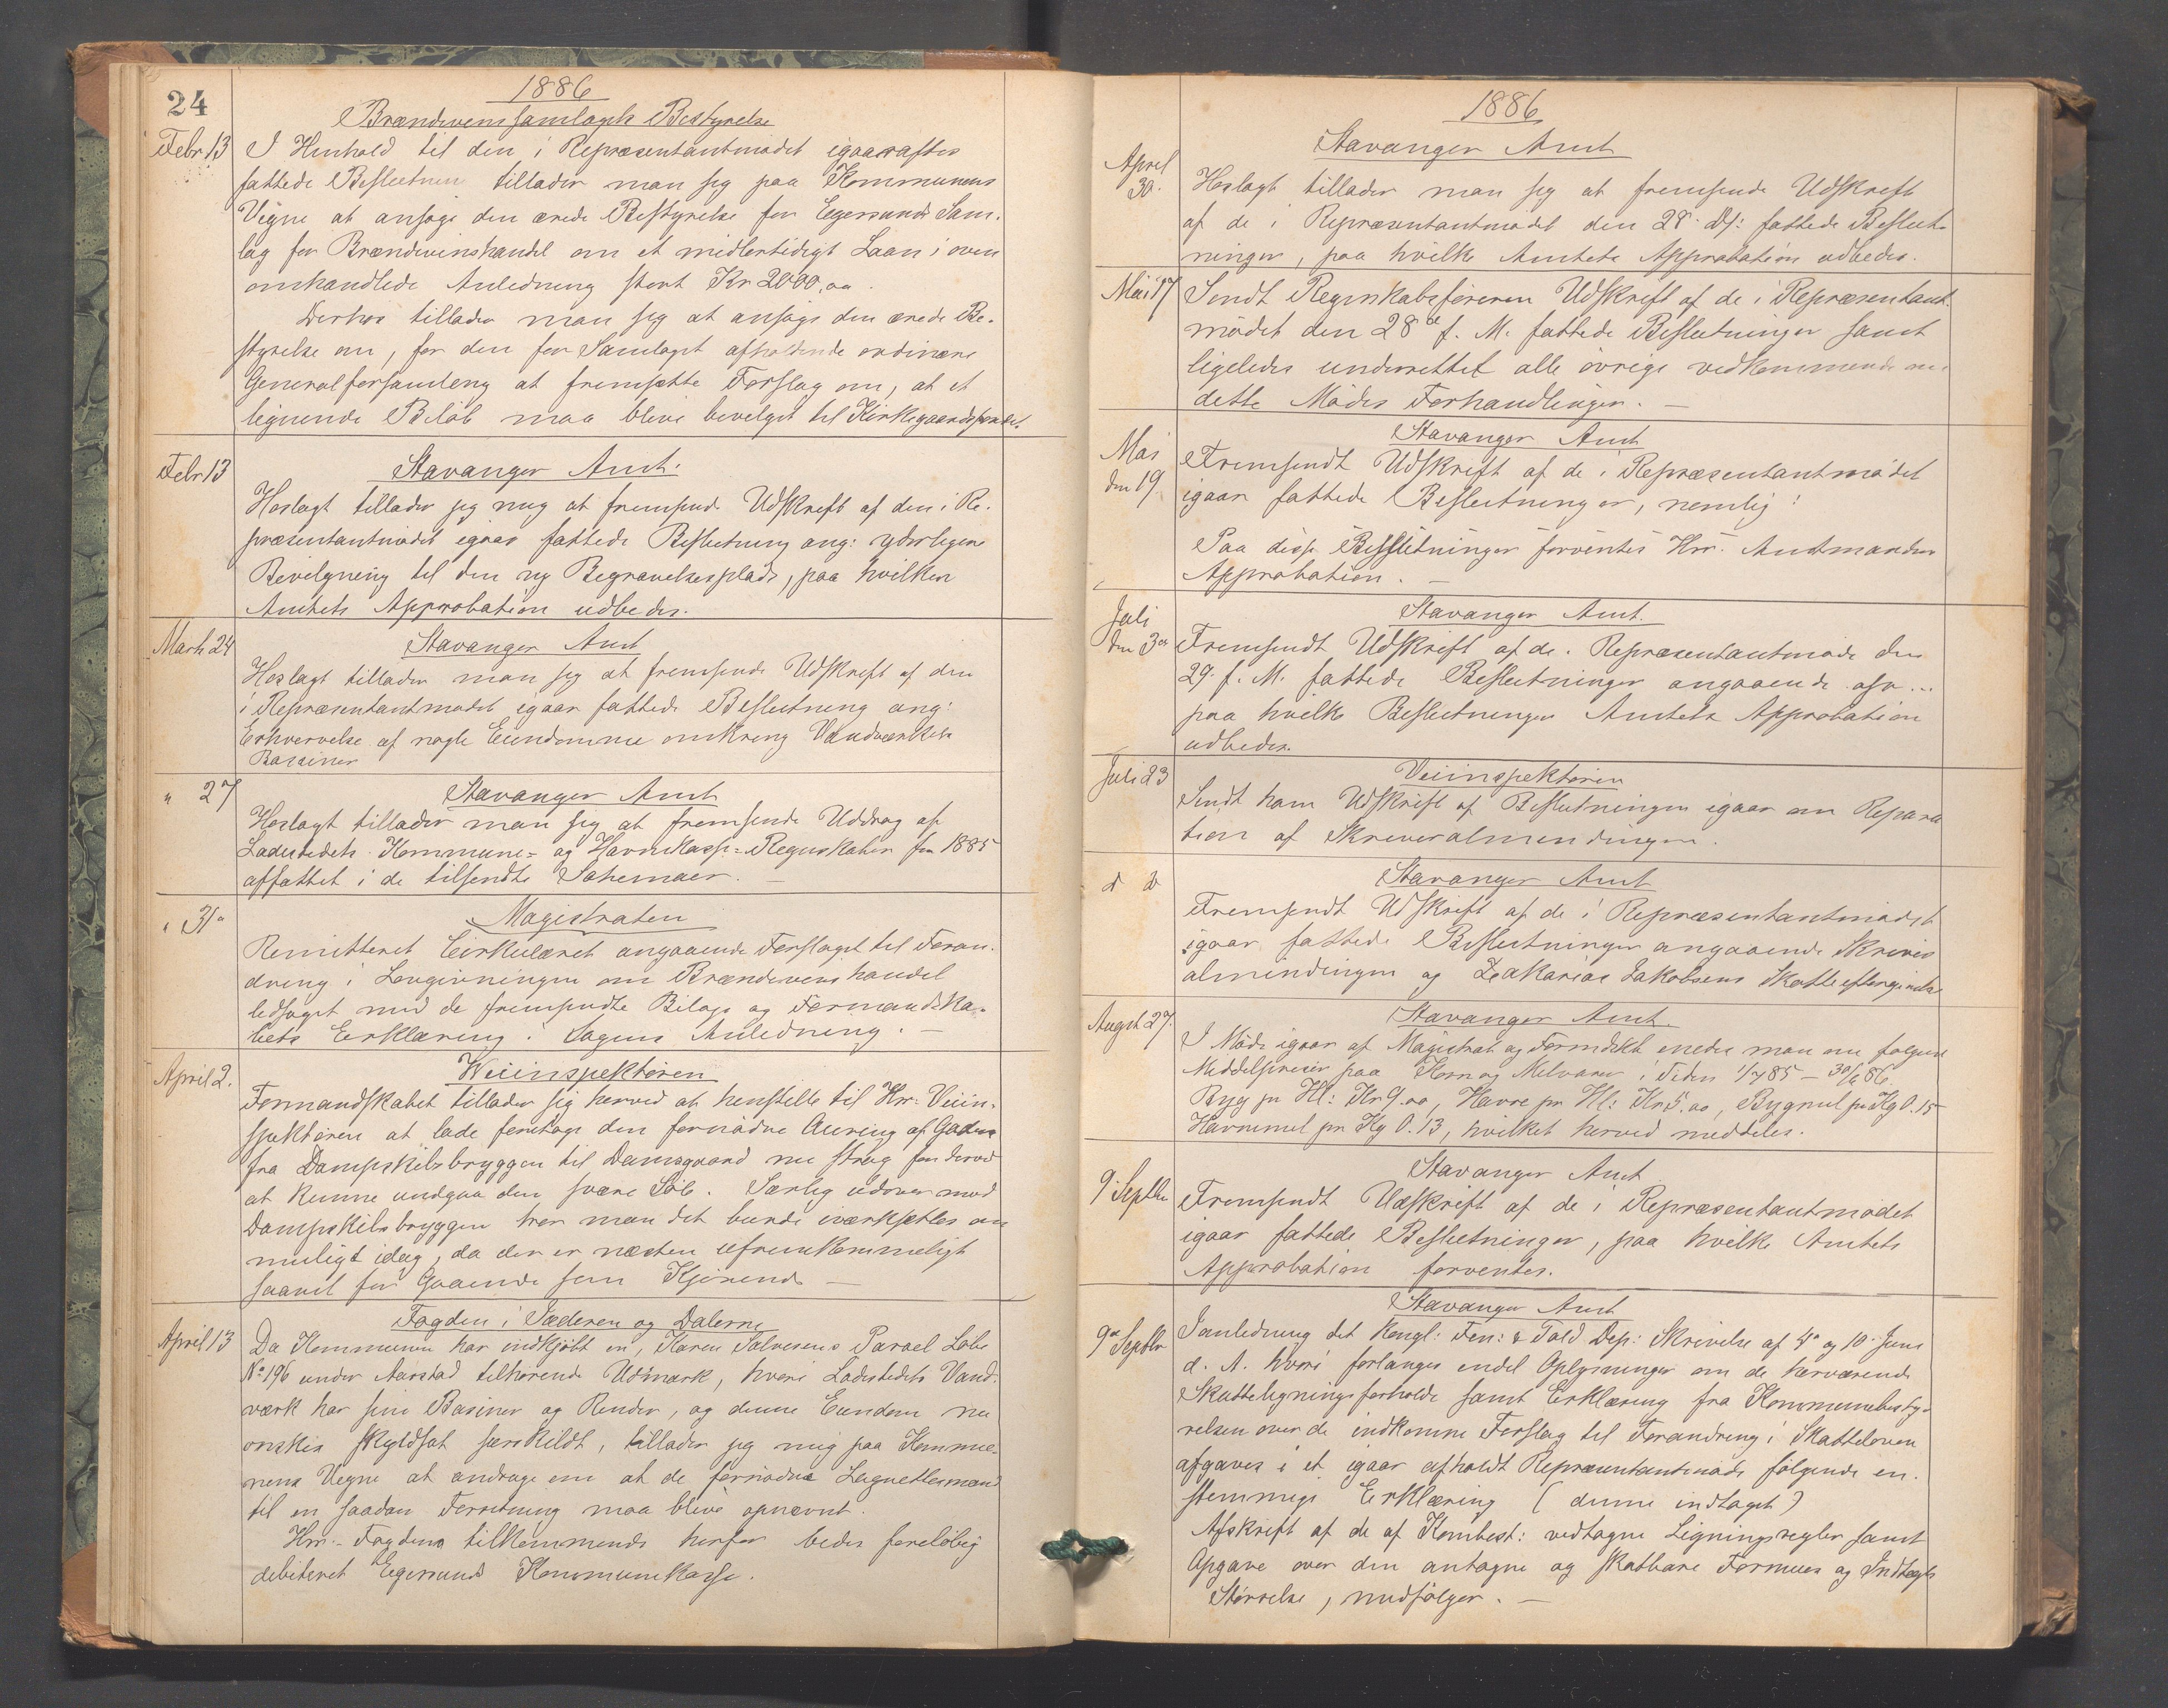 24
1886
Brændevinssamlagets Bestyrelse
Febr 13 I Henhold til den i Repræsentantmødet igaaraftes
fattede Beslutning tillader man sig paa Kommunens
Vegne at ansøge den ærede Bestyrelse for Egersunds Sam-
lag for Brændevinshandel om et midlertidigt Laan i oven
omhandlede Anledning stort Kr 2000,00.
Derhos tillader man sig at ansøge den ærede Be-
styrelse om, for den for Samlaget afholdende ordinære
Generalforsamling at fremsætte Forslag om, at et
lignende Beløb maa blive bevilget til Kirkegaardsfondet.
Febr 13 Stavanger Amt.
Hoslagt tillader jeg mig at fremsende Udskrift af den i Re-
præsentantmødet igaar fattede Beslutning ang: yderligere
Bevilgning til den ny Begravelsesplads, paa hvilken
Amtets Approbation udbedes.
Marts 24 Stavanger Amt
Hoslagt tillader man sig at fremsende Udskrift af den
i Repræsentantmødet igaar fattede Beslutning ang:
Erhvervelse af nogle Eiendomme omkring Vandværkets
Bassiner
" 27 Stavanger Amt
Hoslagt tillader man sig at fremsende Uddrag af
Ladestedets Kommune= og Havnekasse=Regnskaber for 1885
affattet i de tilsendte Schemaer. —
" 31 Magistraten
Remitteret Cirkulæret angaaende Forslaget til Foran-
dring i Lovgivningen om Brændevinshandel
ledsaget med de fremsendte Bilage og Formandska-
bets Erklæring i Sagens Anledning. —
April 2. Veiinspektøren
Formandskabet tillader sig herved at henstille til Hr: Veiin-
spektøren at lade foretage den fornødne Auring af Gaden
fra Dampskibsbryggen til Damsgaard nu strax for derved
at kunne undgaa den svære Søle. Særlig udover mod
Dampskibsbryggen tror man det burde iværksættes om
muligt idag, da der er næsten ufremkommeligt
saavel for Gaaende som Kjørende —
April 13 Fogden i Jæderen og Dalerne
Da Kommunen har indkjøbt en, Karen Salvesens Parcel Løbe
No 196 under Aarstad tilhørende Udmark, hvori Ladestedets Vand-
værk har sine Basiner og Render, og denne Eiendom nu
ønskes skyldsat særskildt, tillader jeg mig paa Kommu-
nens Vegne at andrage om at de fornødne Lagrettesmænd
til en saadan Forretning maa blive opnævnt.
Hr. Fogdens tilkommende herfor bedes foreløbig
debiteret Egersunds Kommunekasse.
1886
Stavanger Amt
April 30. Hoslagt tillader man sig at fremsende Udskrift
af de i Repræsentantmødet den 28. ds: fattede Beslut-
ninger, paa hvilke Amtets Approbation udbedes.
Mai 17 Sendt Regnskabsføreren Udskrift af de i Repræsentant-
mødet den 28de f. M. fattede Beslutninger samt
ligeledes underrettet alle øvrige vedkommende om
dette Mødes Forhandlinger. —
Stavanger Amt
Mai den 19 Fremsendt Udskrift af de i Repræsentantmødet
igaar fattede Beslutninger, nemlig:
Paa disse Beslutninger forventes Hr. Amtmandens
Approbation. —
Stavanger Amt.
Juli den 3die Fremsendt Udskrift af de i Repræsentantmøde den
29. f. M. fattede Beslutninger angaaende osv...
paa hvilke Beslutninger Amtets Approbation
udbedes.
Juli 23 Veiinspektøren
Sendt ham Udskrift af Beslutningen igaar om Repara
tion af Skriveralmendingen.
d d Stavanger Amt
Fremsendt Udskrift af de i Repræsentantmødet
igaar fattede Beslutninger angaaende Skriver
almindingen og Zakarias Jakobsens Skatteeftergivelse
August 27. Stavanger Amt.
I Møde igaar af Magistrat og Formdskbt enedes man om følgende
Middelpriser paa Korn og Melvarer i Tiden 1/7 85 — 30/6 86.
Byg pr Hl: Kr 9.00, Havre pr Hl: Kr 5.00, Bygmel pr Kg 0.15
Havremel pr Kg 0.13, hvilket herved meddeles.
Stavanger Amt
9 Septbr Fremsendt Udskrift af de i Repræsentantmødet
igaar fattede Beslutninger, paa hvilke Amtets
Approbation forventes.
Stavanger Amt
9de Septbr I anledning det Kongl: Fin: & Told Dep: Skrivelse af 4de og 10. Juni
d. A. hvori forlanges endel Oplysninger om de herværende
Skatteligningsforholde samt Erklæring fra Kommunebesty-
relsen over de indkomne Forslag til Forandring i Skatteloven
afgaves i et igaar afholdt Repræsentantmøde følgende en-
stemmige Erklæring (denne indtaget)
Afskrift af de af Kombest: vedtagne Ligningsregler samt
Opgave over den antagne og skatbare Formues og Indtægts
Størrelse, medfølger. —